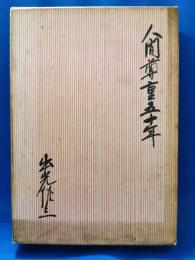 人間尊重五十年
出光佐三